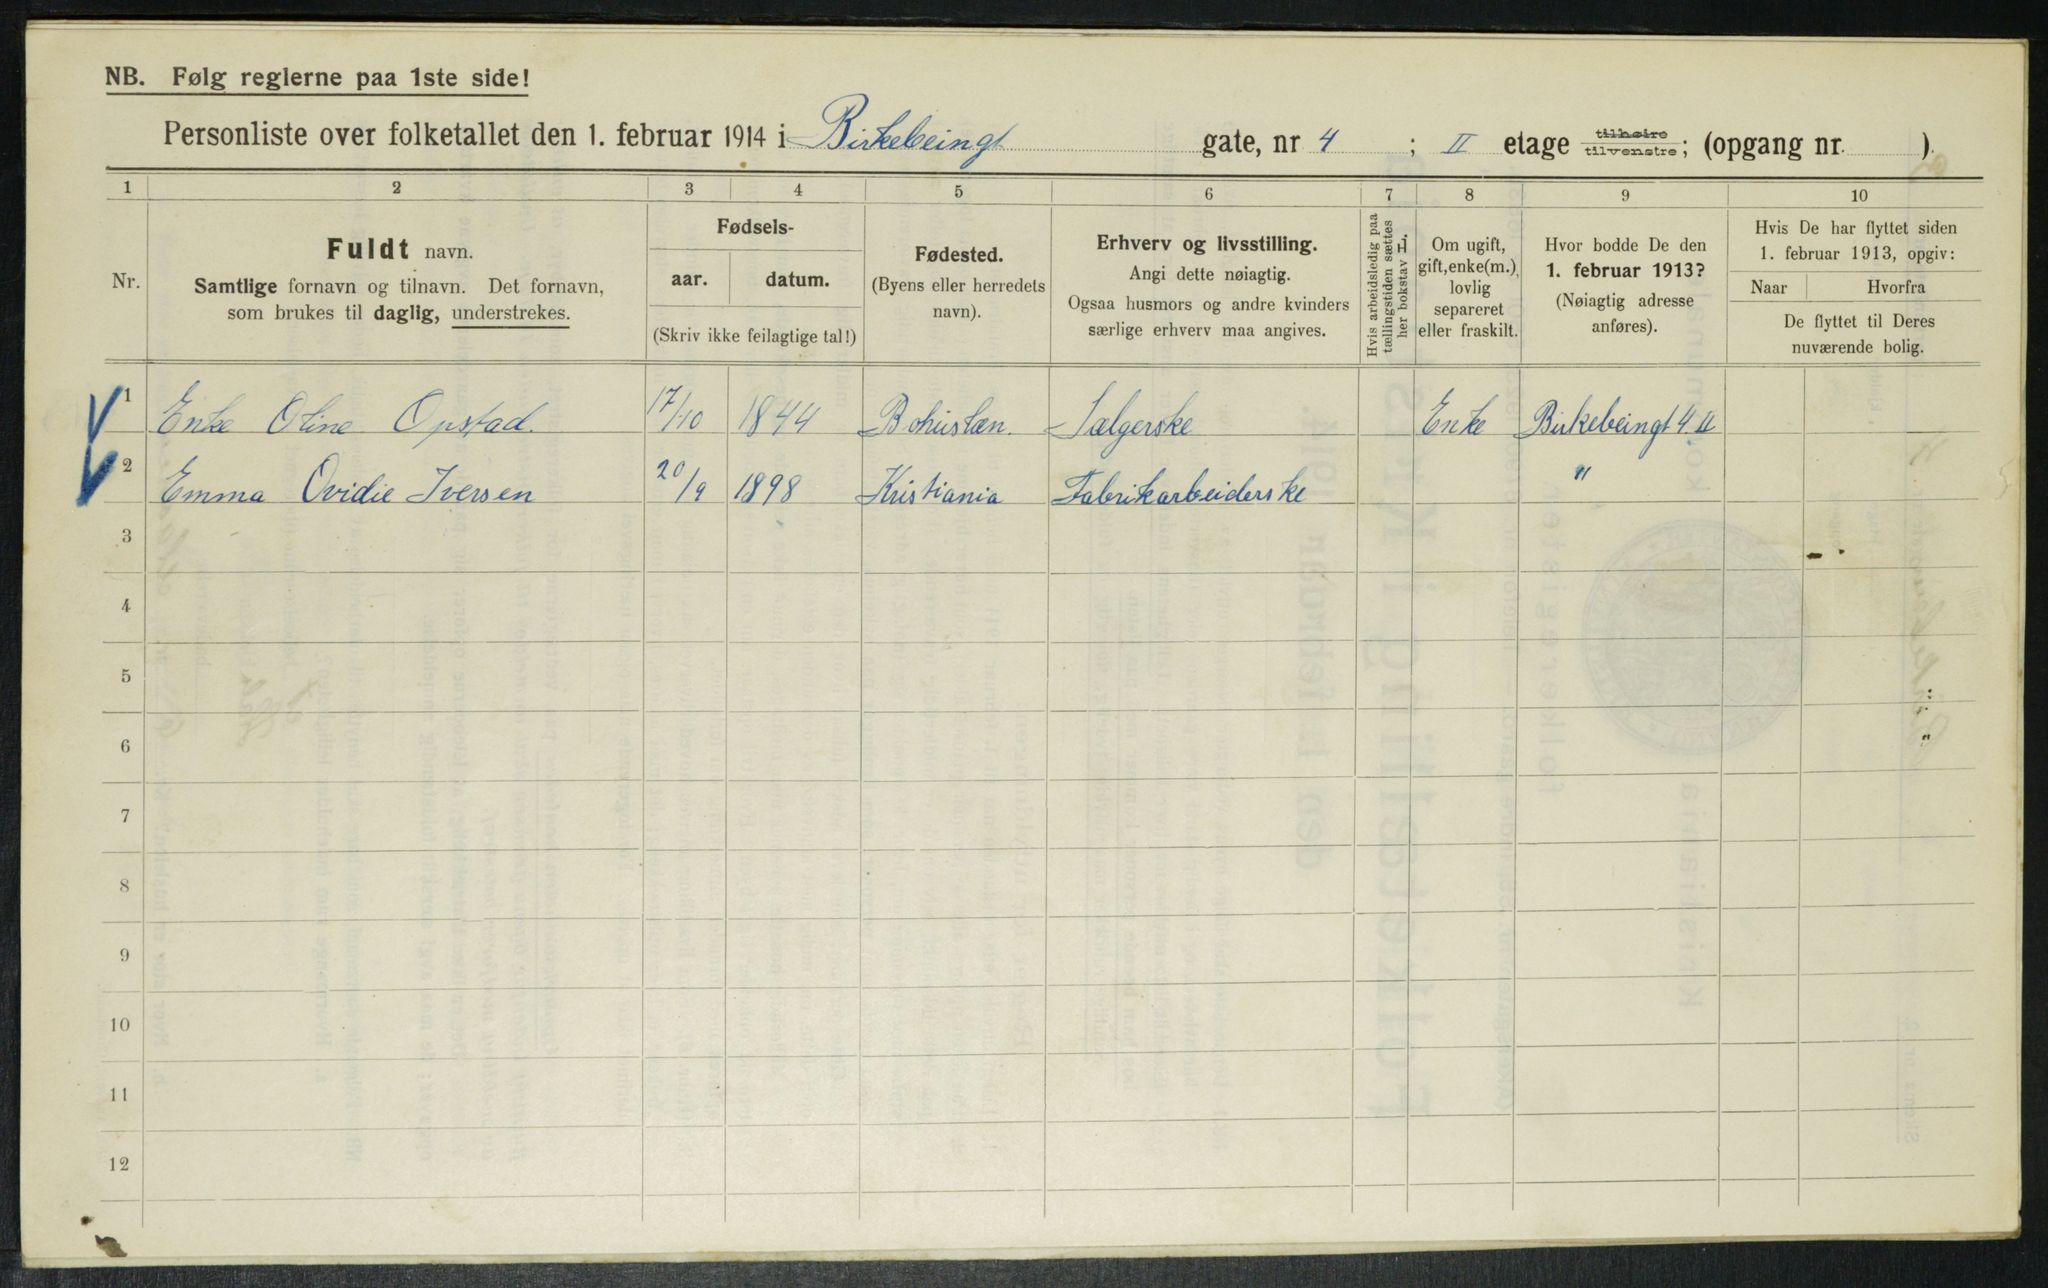 NB. Følg reglerne paa 1ste side!
Personliste over folketallet den 1. februar 1914 i Birkebeingt gate, nr 4 ; II etage tilhøire tilvenstre; (opgang nr. ).
1 2 3 4 5 6 7 8 9 10
Nr.
Fuldt navn.
Samtlige fornavn og tilnavn. Det fornavn,
som brukes til daglig, understrekes.
Fødsels-
aar. datum.
(Skriv ikke feilagtige tal!)
Fødested.
(Byens eller herredets
navn).
Erhverv og livsstilling.
Angi dette nøiagtig.
Ogsaa husmors og andre kvinders
særlige erhverv maa angives.
Hvis arbeidsledig paa
tællingstiden sættes
her bokstav L.
Om ugift,
gift, enke(m.),
lovlig
separeret
eller fraskilt.
Hvor bodde De den
1. februar 1913?
(Nøiagtig adresse
anføres).
Hvis De har flyttet siden
1. februar 1913, opgiv:
Naar Hvorfra
De flyttet til Deres
nuværende bolig.
1 Enke Oline Opstad. 17/10 1844 Bohuslæn. Sælgerske Enke Birkebeingt 4 II
2 Emma Ovidie Iversen 20/9 1898 Kristiania Fabrikarbeiderske "
3
4
5
6
7
8
9
10
11
12